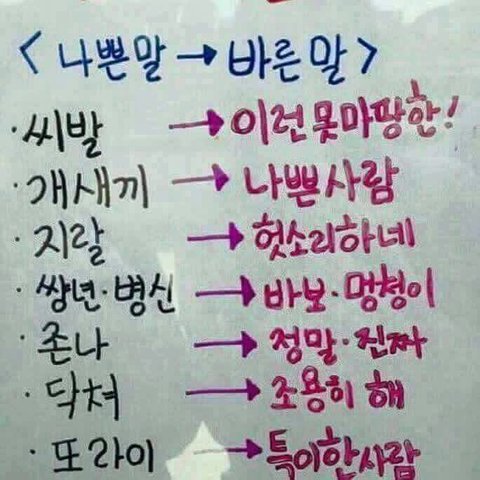 <나쁜말→바른말>
·씨발 → 이런못마땅한!
·개새끼 → 나쁜사람
·지랄 → 헛소리하네
·썅년·병신 → 바보·멍청이
·존나 → 정말·진짜
·닥쳐 → 조용히 해
·또라이 → 특이한사람